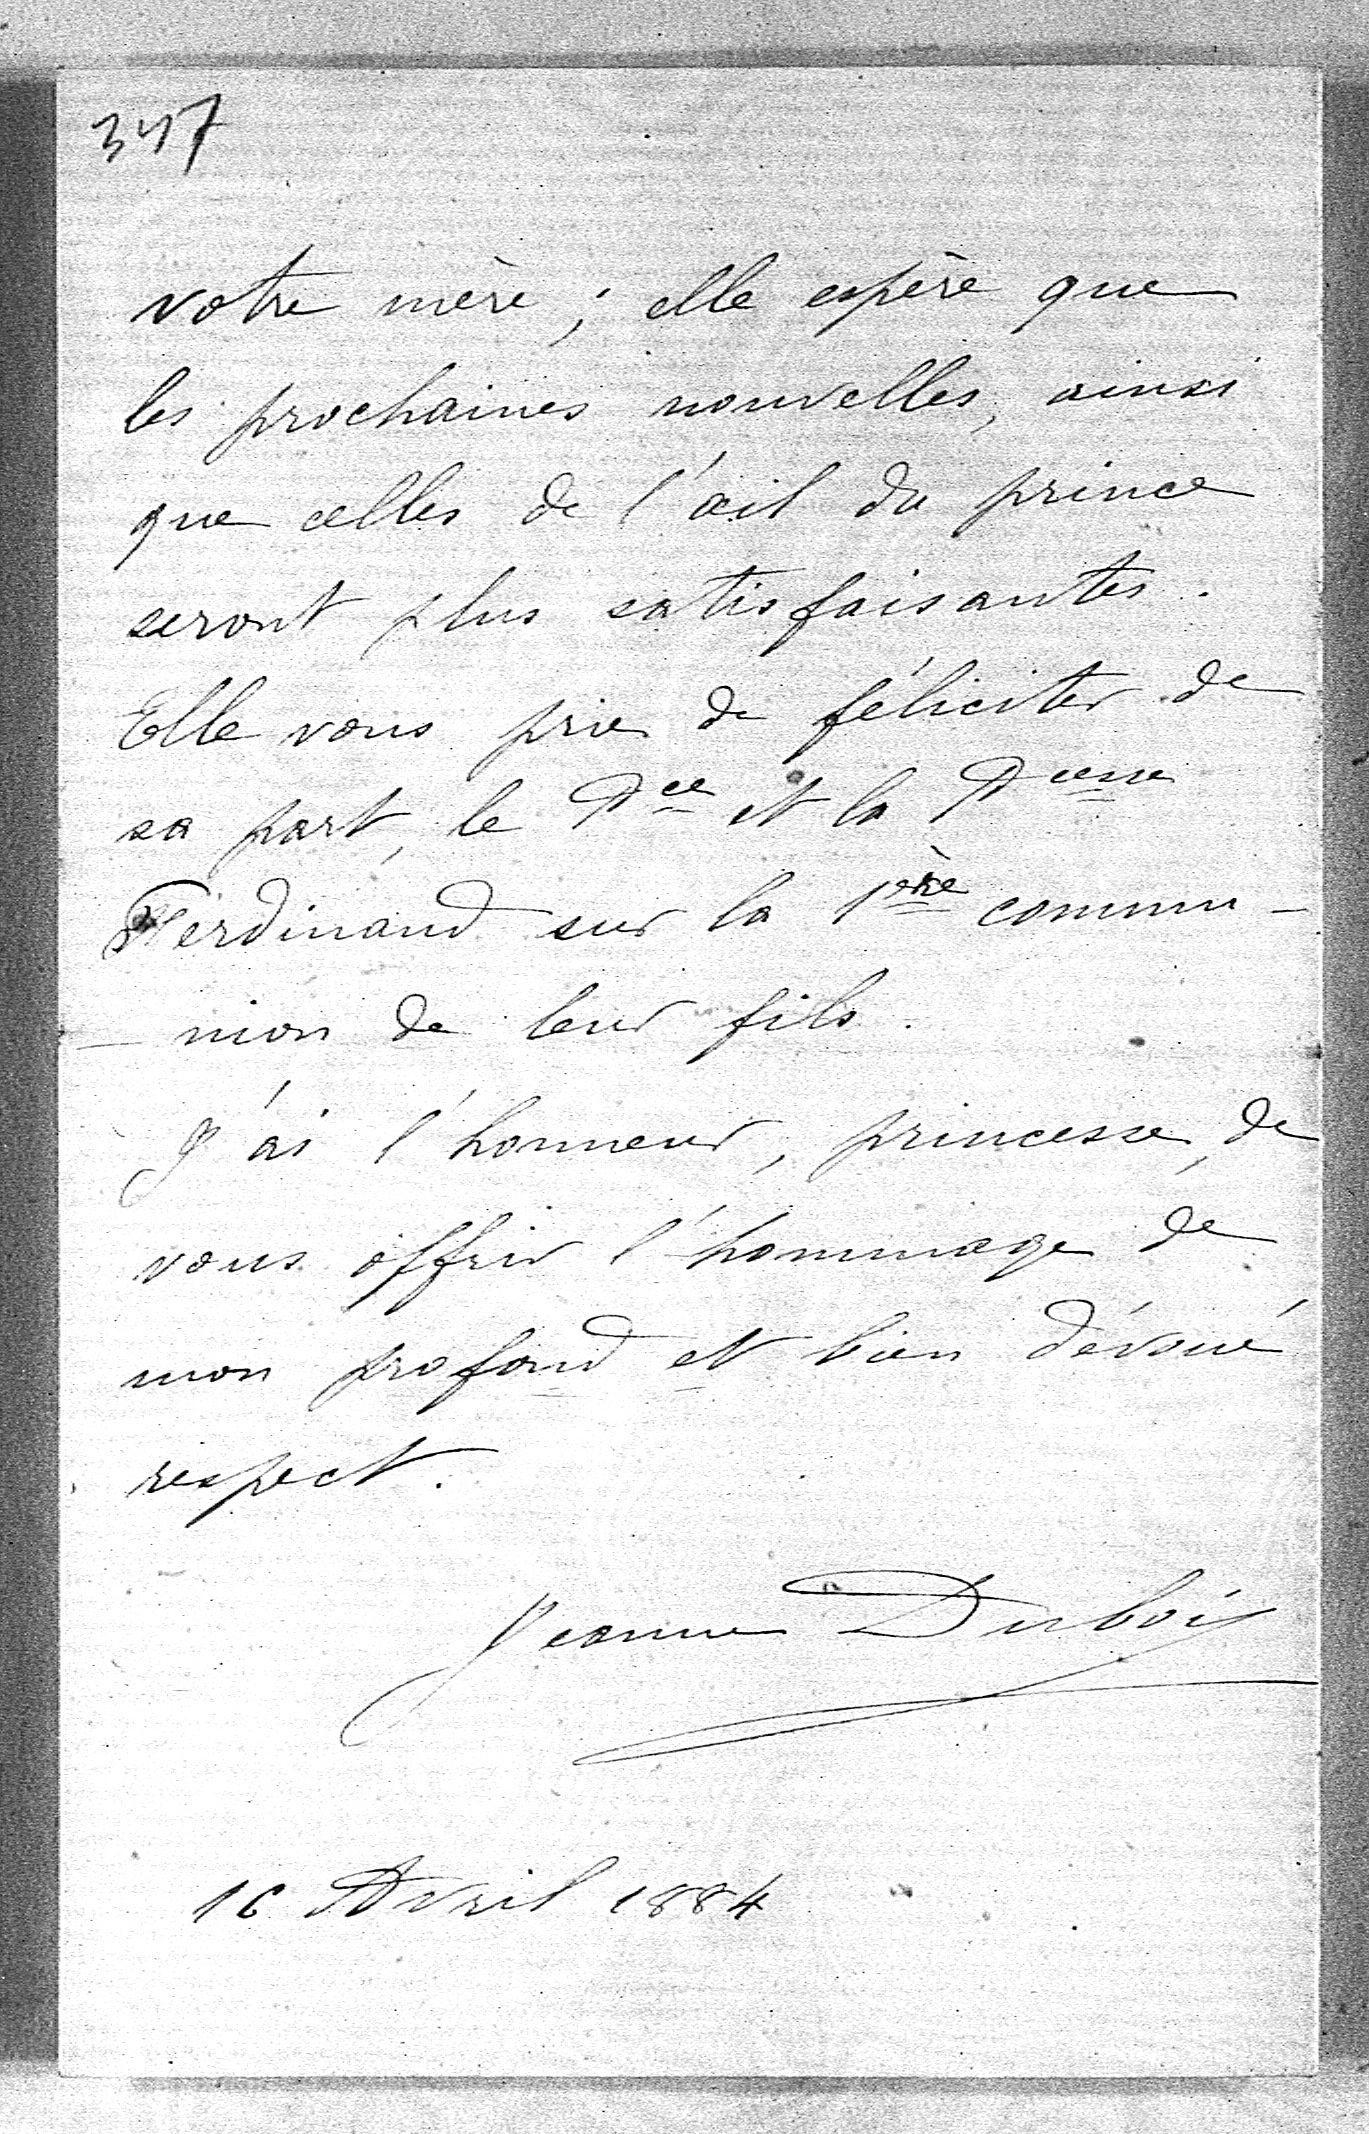 347
votre mère ; elle espère que
les prochaines nouvelles, ainsi
que celles de l'œil du prince
seront plus satisfaisantes.
Elle vous prie de féliciter de
sa part, le Pce et la Pcesse
Ferdinand sur la 1ère commu-
-nion de leur fils.
J'ai l'honneur, princesse, de
vous offrir l'hommage de
mon profond et bien dévoué
respect.
Jeanne Dubois
16 Avril 1884